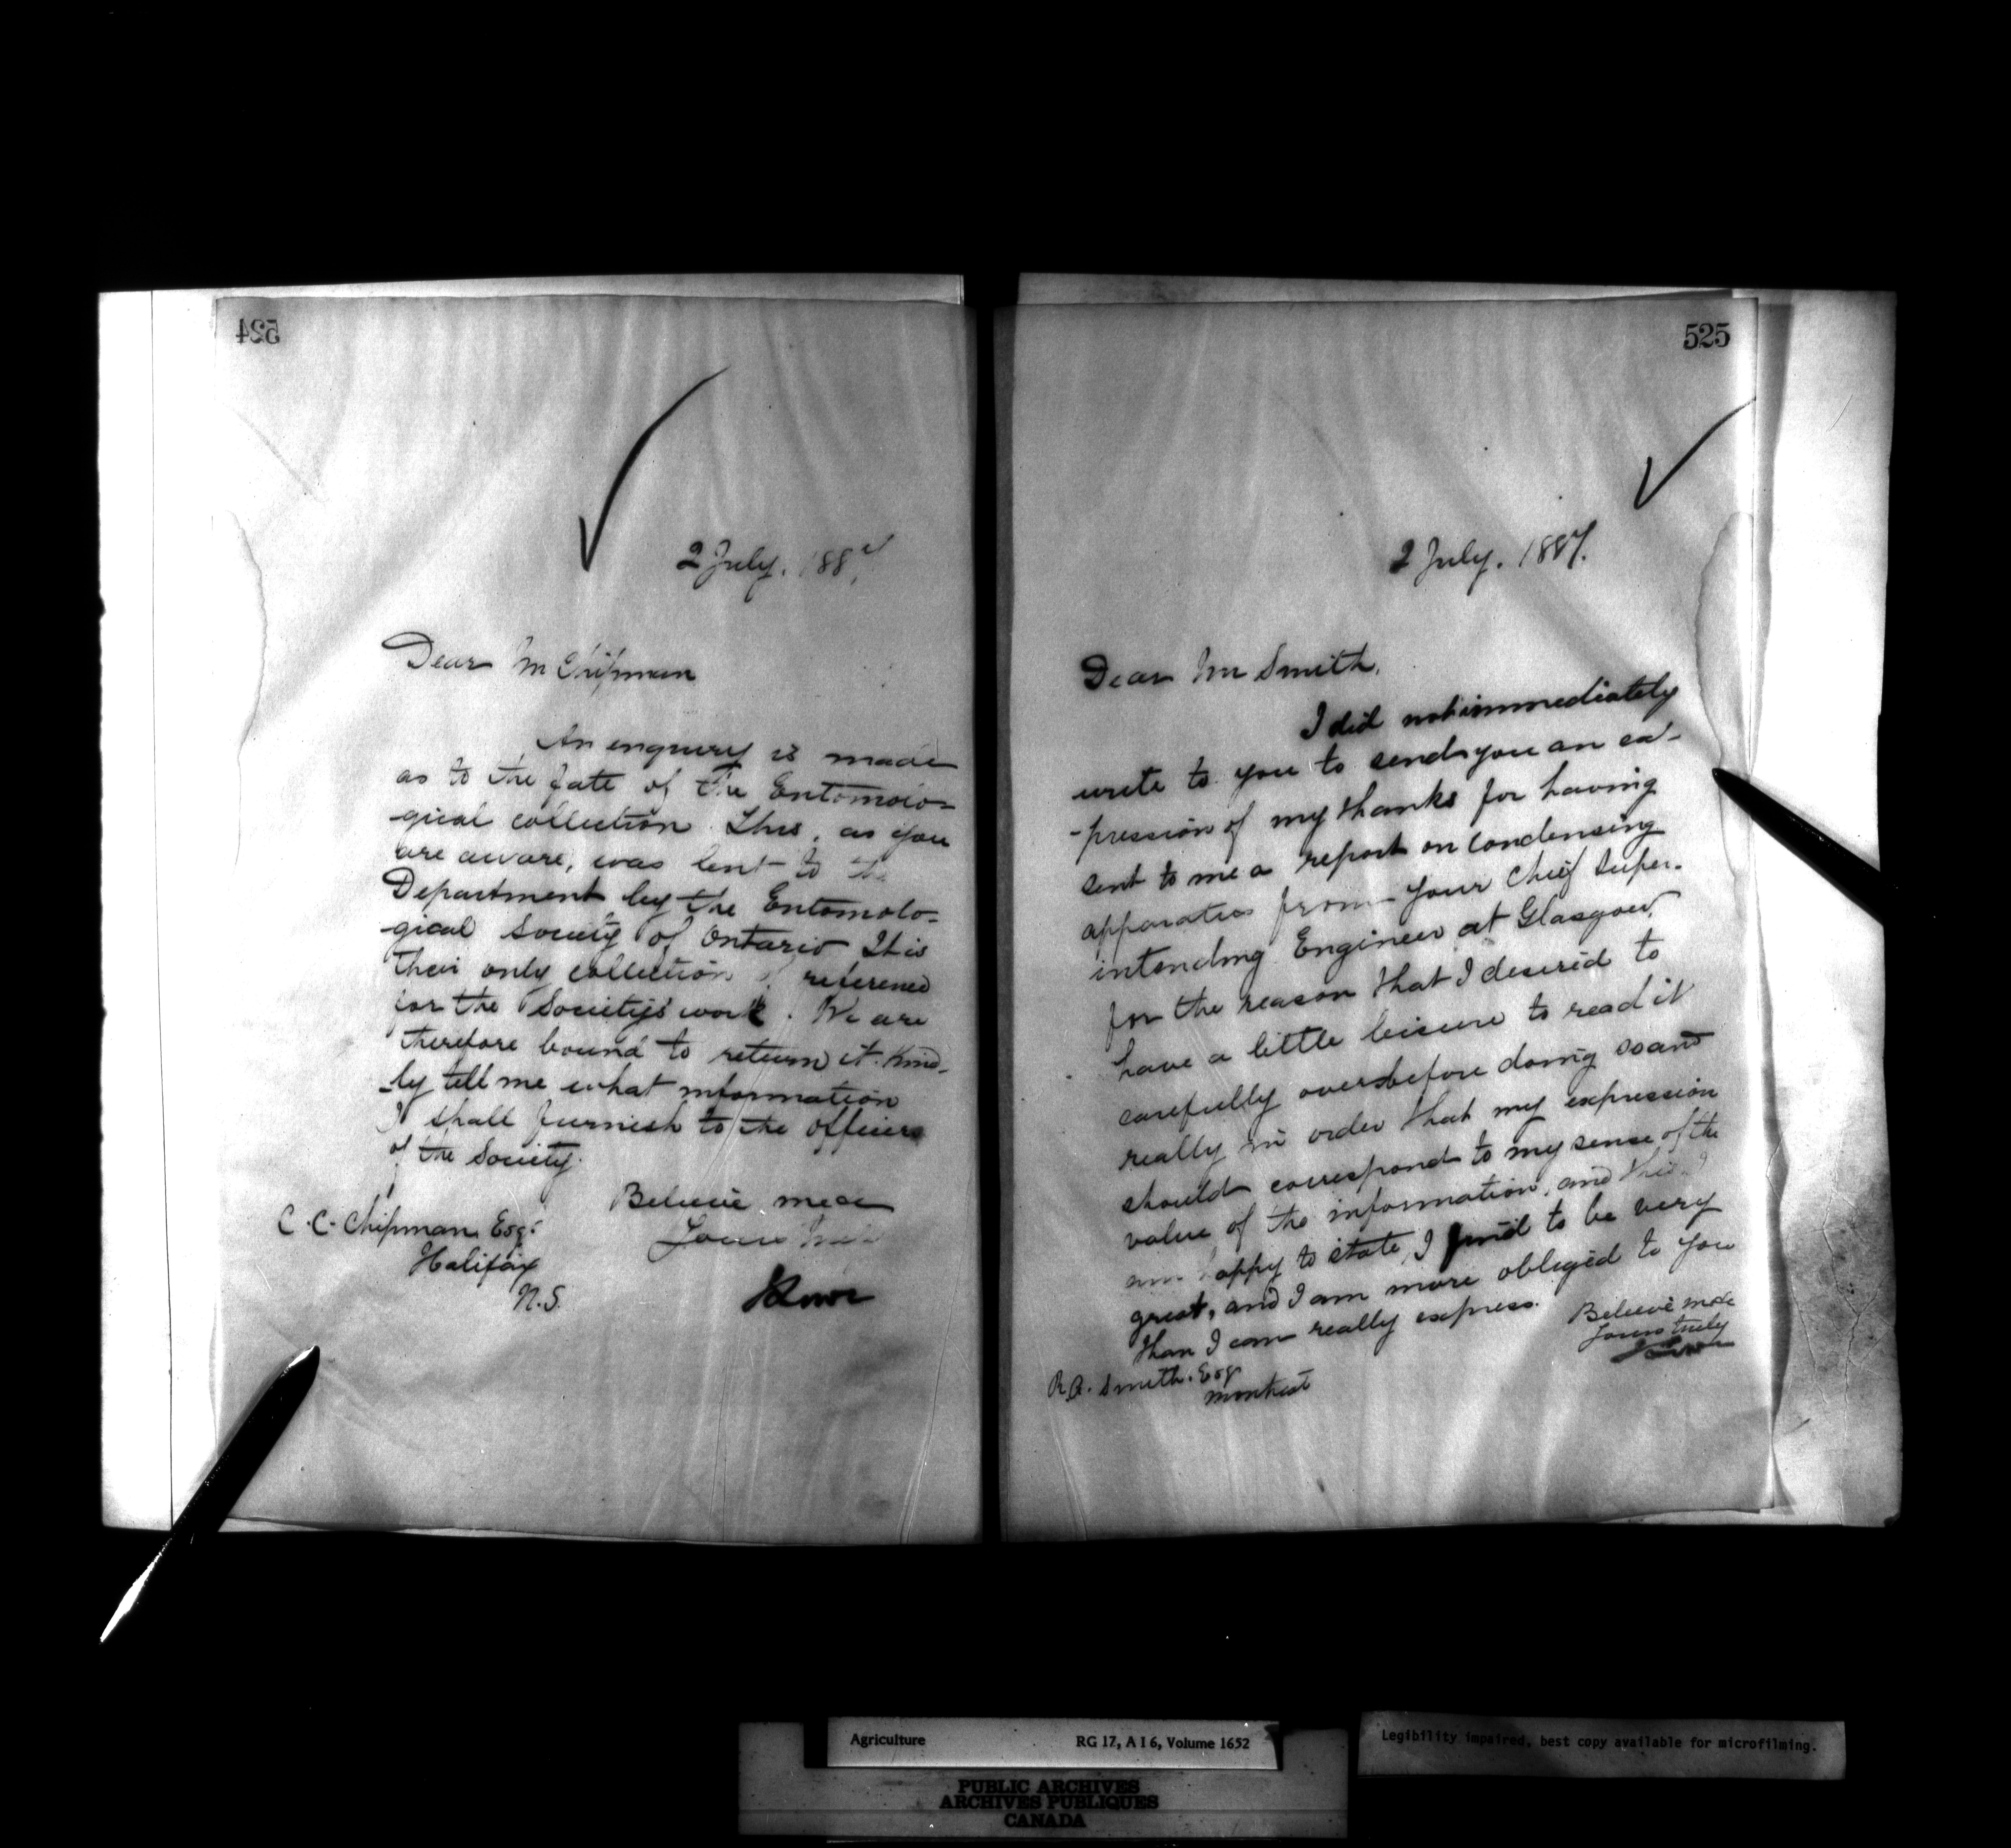 524
2 July. 188
Dear Mr Chipman
An enquiry is made
as to the fate of the Entomolo-
gical collection. This, as you
are aware, was lent to the
Department by the Entomolo-
gical Society of Ontario It is
their only collection of reference
for the Society's work. We are
therefore bound to return it. Kind-
-ly tell me what information
I shall furnish to the officers
of the Society.
Believe me
Yours truly
C. C. Chipman Esq.
Halifax
N.S.
525
2 July. 1887.
Dear Mr Smith,
I did not immediately
write to you to send you an ex-
-pression of my thanks for having
sent to me a report on condensing
apparatus from your Chief Super-
intending Engineer at Glasgow,
for the reason that I desired to
have a little leisure to read it
carefully over before doing so and
really in order that my expression
should correspond to my sense of the
value of the information, and this I
am happy to state, I find to be very
great, and I am more obliged to you
than I can really express.
Believe me
Yours truly
R.A. Smith. Esq
Montreal
Agriculture RG 17, A I 6, Volume 1652
Legibility impaired, best copy available for microfilming.
PUBLIC ARCHIVES
ARCHIVES PUBLIQUES
CANADA